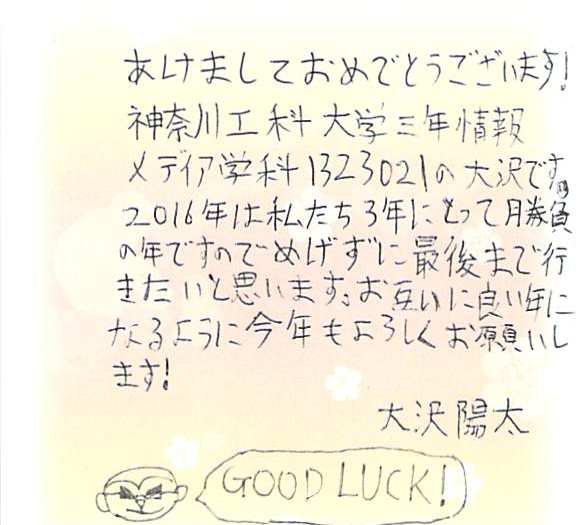 あけましておめでとうございます!
神奈川工科大学三年情報
メディア学科1323021の大沢です。
2016年は私たち3年にとって勝負
の年ですのでめげずに最後まで行
きたいと思います。お互いに良い年に
なるように今年もよろしくお願いし
ます!
大沢陽太
GOOD LUCK!